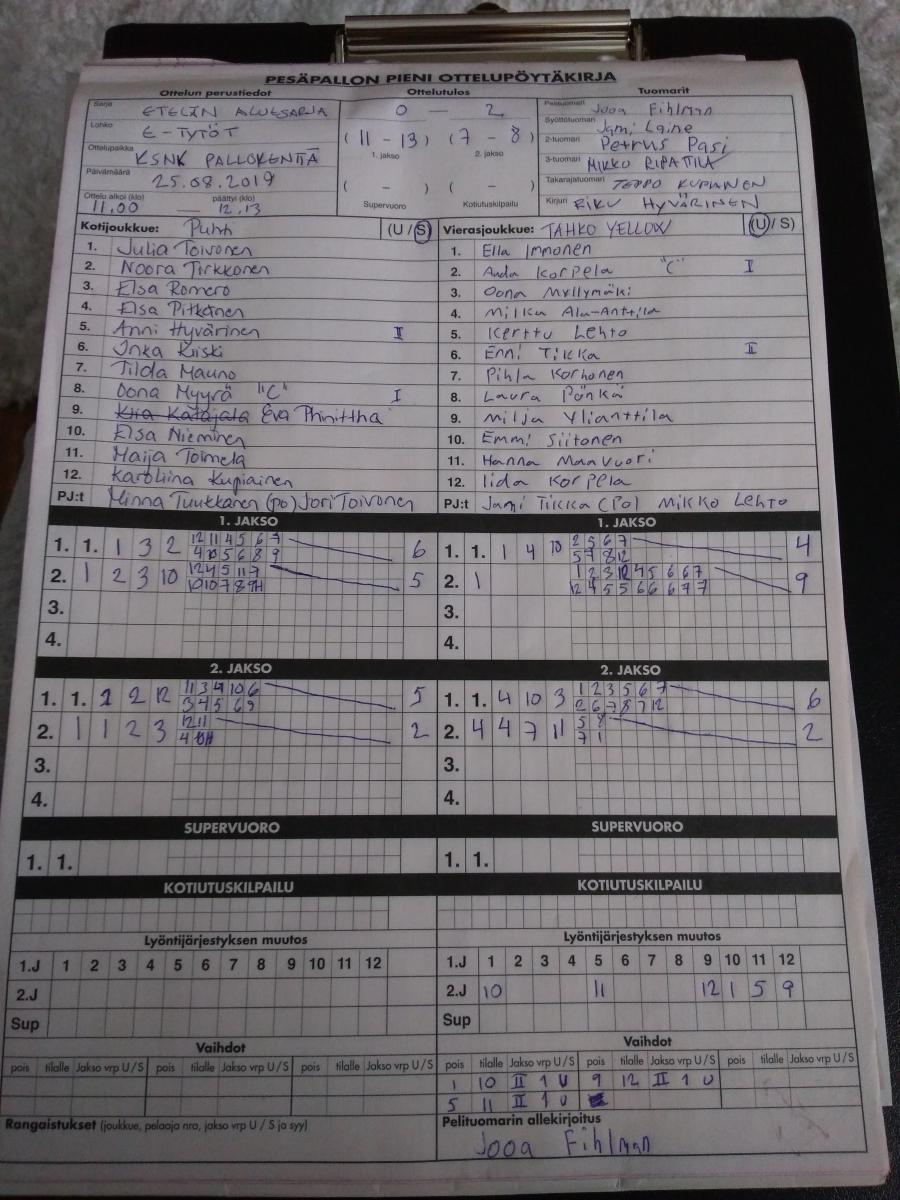 PESÄPALLON PIENI OTTELUPÖYTÄKIRJA
Ottelun perustiedot Ottelutulos Tuomarit
Sarja ETELÄN ALUESARJA
Lohko E-TYTÖT
Ottelupaikka KSNK PALLOKENTTÄ
Päivämäärä 25.08.2019
Ottelu alkoi (klo) päättyi (klo)
11.00 — 12.13
0 — 2
(11 - 13) (7 - 8)
1. jakso 2. jakso
( - ) ( - )
Supervuoro Kotiutuskilpailu
Pelituomari Jooa Fihlman
Syöttötuomari Jami Laine
2-tuomari Petrus Pasi
3-tuomari MIKKO RIPATTILA
Takarajatuomari TEPPO KUPIAINEN
Kirjuri RIKU HYVÄRINEN
Kotijoukkue: Puhti (U / S)
1. Julia Toivonen
2. Noora Tirkkonen
3. Elsa Romero
4. Elsa Pitkänen
5. Anni Hyvärinen II
6. Inka Kiiski
7. Tilda Mauno
8. Oona Myyrä "C" I
9. Kiia Katajala Eva Phinittha
10. Elsa Nieminen
11. Maija Toimela
12. Karoliina Kupiainen
PJ:t Minna Tuukkanen (po) Jori Toivonen
Vierasjoukkue: TAHKO YELLOW (U / S)
1. Ella Immonen
2. Anda Korpela "C" I
3. Oona Myllymäki
4. Milka Ala-Anttila
5. Kerttu Lehto
6. Enni Tikka II
7. Pihla Korhonen
8. Laura Pänkä
9. Milja Ylianttila
10. Emmi Siitonen
11. Hanna Maavuori
12. Iida Korpela
PJ:t Jami Tikka (Po) Mikko Lehto
1. JAKSO
1. 1. 1 3 2 12 11 4 5 6 7 6
4 10 5 6 8 9
2. 1 2 3 10 12 4 5 11 7 5
10 10 7 8 9 11
3.
4.
1. JAKSO
1. 1. 1 4 10 2 5 6 7 4
5 7 8 12
2. 1 1 2 3 12 4 5 6 6 7 9
12 4 5 5 6 6 6 7 7
3.
4.
2. JAKSO
1. 1. 1 2 12 11 3 4 10 6 5
3 4 5 6 9
2. 1 1 2 3 12 11 2
4
3.
4.
2. JAKSO
1. 1. 4 10 3 1 2 3 5 6 7 6
2 6 7 8 7 12
2. 4 4 7 11 5 8 2
7 1
3.
4.
SUPERVUORO
1. 1.
SUPERVUORO
1. 1.
KOTIUTUSKILPAILU
KOTIUTUSKILPAILU
Lyöntijärjestyksen muutos
1.J 1 2 3 4 5 6 7 8 9 10 11 12
2.J
Sup
Lyöntijärjestyksen muutos
1.J 1 2 3 4 5 6 7 8 9 10 11 12
2.J 10 11 12 1 5 9
Sup
Vaihdot
pois tilalle Jakso vrp U / S pois tilalle Jakso vrp U / S pois tilalle Jakso vrp U / S
Vaihdot
pois tilalle Jakso vrp U / S pois tilalle Jakso vrp U / S pois tilalle Jakso vrp U / S
1 10 II 1 U 9 12 II 1 U
5 11 II 1 U
Rangaistukset (joukkue, pelaaja nro, jakso vrp U / S ja syy)
Pelituomarin allekirjoitus
Jooa Fihlman